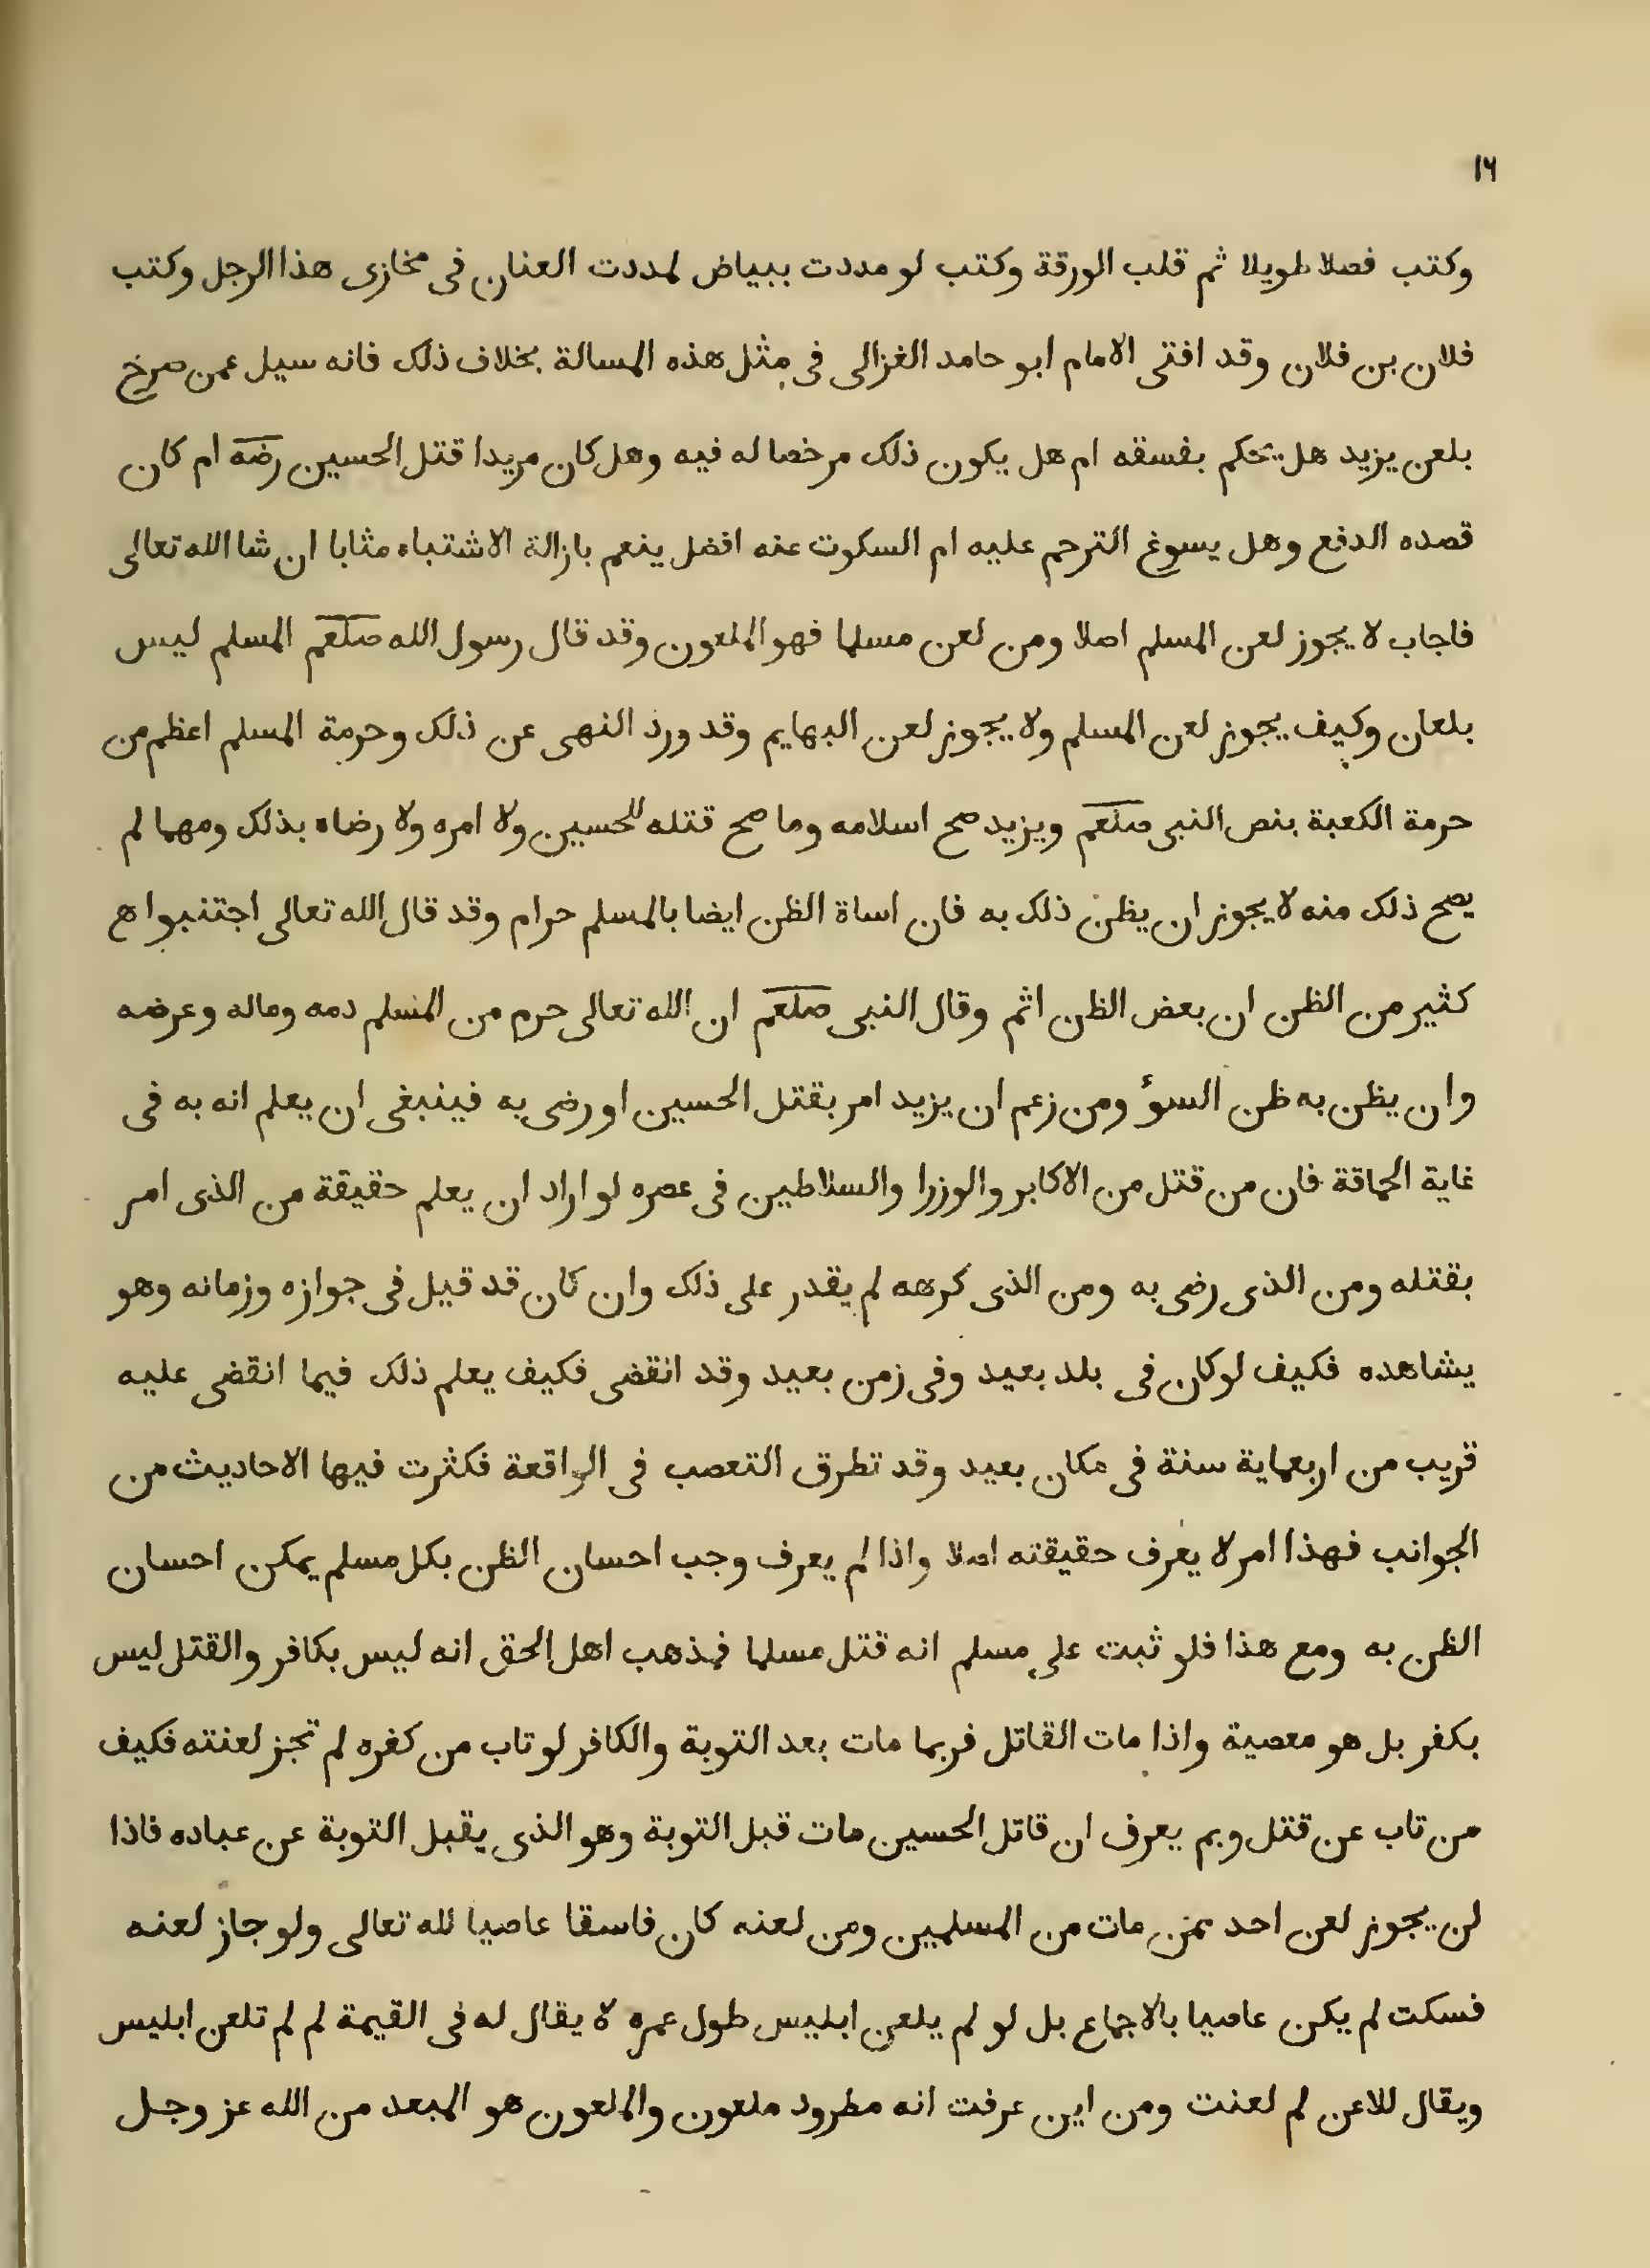 ١٦
وكتب فصلا طويلا ثم قلب الورقة وكتب لو مددت ببياض لمددت العنان فى مخازى هذا الرجل وكتب
فلان بن فلان وقد افتى الامام ابو حامد الغزالى فى مثل هذه المسالة بخلاف ذلك فانه سيل عمن صرخ
بلعن يزيد هل يحكم بفسقه ام هل يكون ذلك مرخصا له فيه وهل كان مريدا قتل الحسين رضه ام كان
قصده الدفع وهل يسوغ الترحم عليه ام السكوت عنه افضل ينعم بازالة الاشتباه مثابا ان شا الله تعالى
فاجاب لا يجوز لعن المسلم اصلا ومن لعن مسلما فهو الملعون وقد قال رسول الله صلعم المسلم ليس
بلعان وكيف يجوز لعن المسلم ولا يجوز لعن البهايم وقد ورد النهى عن ذلك وحرمة المسلم اعظم من
حرمة الكعبة بنص النبى صلعم ويزيد صح اسلامه وما صح قتله للحسين ولا امره ولا رضاه بذلك ومهما لم
يصح ذلك منه لا يجوز ان يظن ذلك به فان اساة الظن ايضا بالمسلم حرام وقد قال الله تعالى اجتنبوا ه
كثير من الظن ان بعض الظن اثم وقال النبى صلعم ان الله تعالى حرم من المسلم دمه وماله وعرضه
وان يظن به ظن السوٴ ومن زعم ان يزيد امر بقتل الحسين او رضى به فينبغى ان يعلم انه به فى
غاية الحماقة فان من قتل من الاكابر والوزرا والسلاطين فى عصره لو اراد ان يعلم حقيقة من الذى امر
بقتله ومن الذى رضى به ومن الذى كرهه لم يقدر على ذلك وان كان قد قيل فى جوازه وزمانه وهو
يشاهده فكيف لو كان فى بلد بعيد وفى زمن بعيد وقد انقضى فكيف يعلم ذلك فيما انقضى عليه
قريب من اربعماية سنة فى مكان بعيد وقد تطرق التعصب فى الواقعة فكثرت فيها الاحاديث من
الجوانب فهذا امر لا يعرف حقيقته اصلا واذا لم يعرف وجب احسان الظن بكل مسلم يمكن احسان
الظن به ومع هذا فلو ثبت على مسلم انه قتل مسلما فمذهب اهل الحق انه ليس بكافر والقتل ليس
بكفر بل هو معصية واذا مات القاتل فربما مات بعد التوبة والكافر لو تاب من كفره لم تجز لعنته فكيف
من تاب عن قتل وبم يعرف ان قاتل الحسين مات قبل التوبة وهو الذى يقبل التوبة عن عباده فاذا
لن يجوز لعن احد ممن مات من المسلمين ومن لعنه كان فاسقا عاصيا لله تعالى ولو جاز لعنه
فسكت لم يكن عاصيا بالاجماع بل لو لم يلعن ابليس طول عمره لا يقال له فى القيمة لم لم تلعن ابليس
ويقال للاعن لم لعنت ومن اين عرفت انه مطرود ملعون والملعون هو المبعد من الله عز وجل